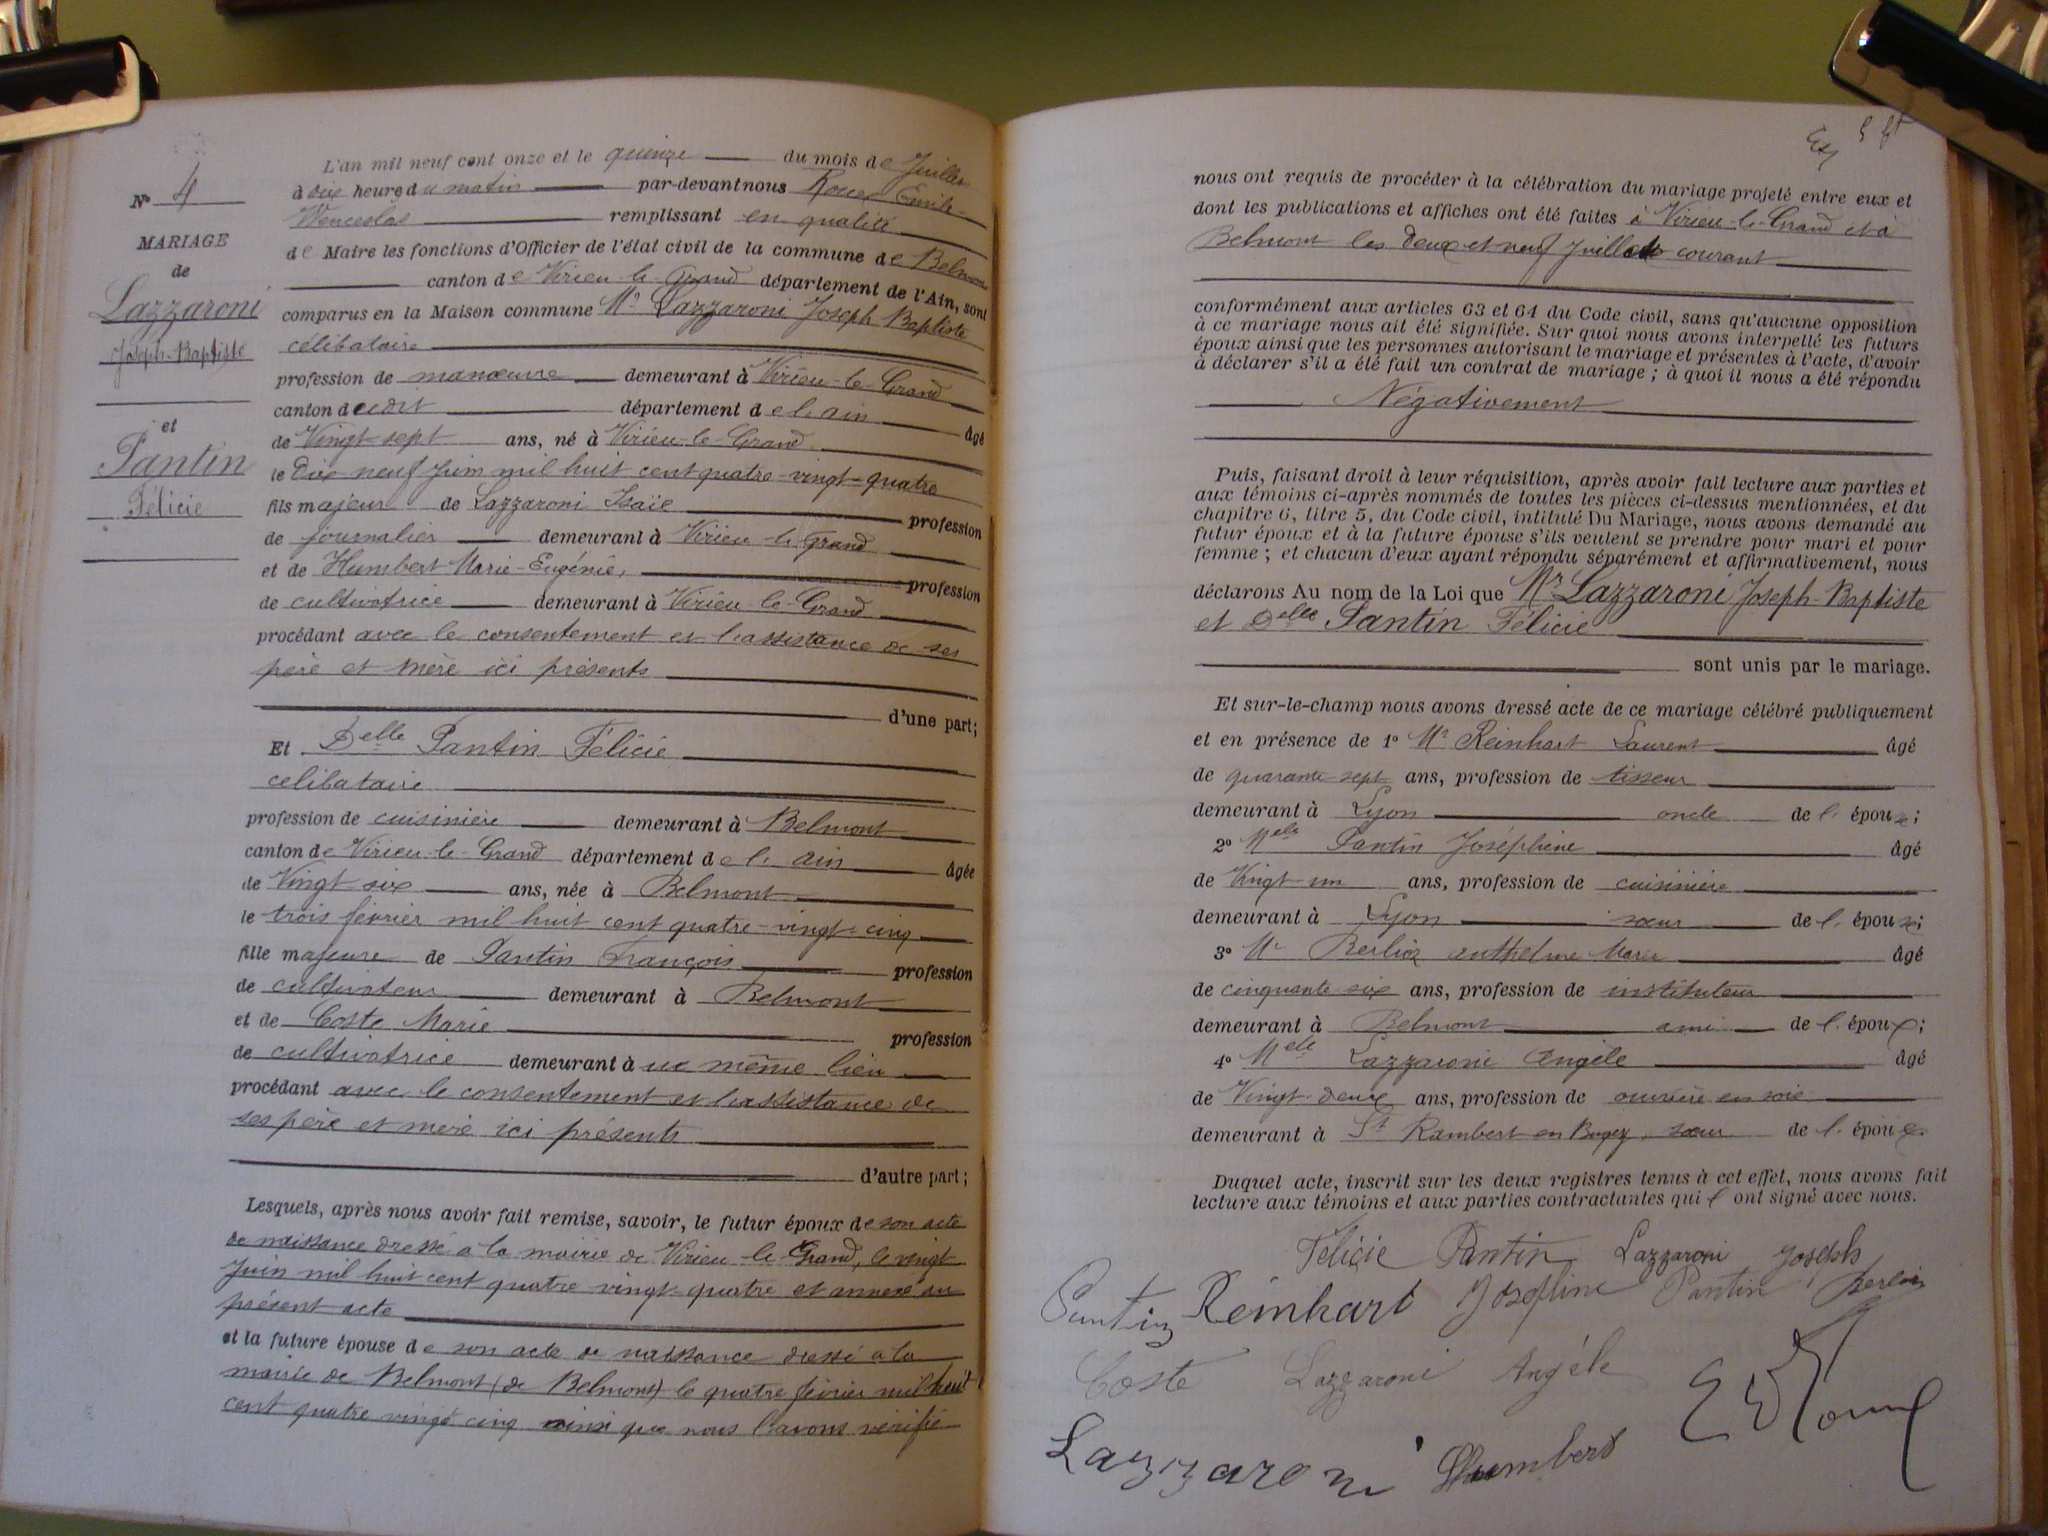 Nº 4
MARIAGE
de
Lazzaroni
Joseph-Baptiste
et
Pantin
Félicie
L'an mil neuf cent onze et le quinze du mois de Juillet
à dix heures du matin par-devant nous Roux Emile
Wenceslas remplissant en qualité
de Maire les fonctions d'Officier de l'état civil de la commune de Belmont
canton de Virieu-le-Grand département de l'Ain, sont
comparus en la Maison commune Mr Lazzaroni Joseph Baptiste
célibataire
profession de manœuvre demeurant à Virieu-le-Grand
canton dudit département de l'ain âgé
de Vingt-sept ans, né à Virieu-le-Grand
le dix neuf juin mil huit cent quatre-vingt-quatre
fils majeur de Lazzaroni Isaïe profession
de journalier demeurant à Virieu-le-Grand
et de Humbert Marie-Eugénie, profession
de cultivatrice demeurant à Virieu-le-Grand
procédant avec le consentement et l'assistance de ses
père et mère ici présents
d'une part;
Et Delle Pantin Félicie
célibataire
profession de cuisinière demeurant à Belmont
canton de Virieu-le-Grand département de l'ain âgée
de Vingt six ans, née à Belmont
le trois février mil huit cent quatre-vingt-cinq
fille majeure de Pantin François profession
de cultivateur demeurant à Belmont
et de Coste Marie profession
de cultivatrice demeurant à ue même lieu
procédant avec le consentement et l'assistance de
ses père et mère ici présents
d'autre part;
Lesquels, après nous avoir fait remise, savoir, le futur époux de son acte
de naissance dressé à la mairie de Virieu-le-Grand, le vingt
Juin mil huit cent quatre vingt-quatre et annexé au
présent acte
et la future épouse de son acte de naissance dressé à la
mairie de Belmont (de Belmont) le quatre février mil huit
cent quatre vingt cinq ainsi que nous l'avons vérifié
nous ont requis de procéder à la célébration du mariage projeté entre eux et
dont les publications et affiches ont été faites à Virieu-le-Grand et à
Belmont les deux et neuf Juillet courant
conformément aux articles 63 et 64 du Code civil, sans qu'aucune opposition
à ce mariage nous ait été signifiée. Sur quoi nous avons interpellé les futurs
époux ainsi que les personnes autorisant le mariage et présentes à l'acte, d'avoir
à déclarer s'il a été fait un contrat de mariage; à quoi il nous a été répondu
Négativement
Puis, faisant droit à leur réquisition, après avoir fait lecture aux parties et
aux témoins ci-après nommés de toutes les pièces ci-dessus mentionnées, et du
chapitre 6, titre 5, du Code civil, intitulé Du Mariage, nous avons demandé au
futur époux et à la future épouse s'ils veulent se prendre pour mari et pour
femme; et chacun d'eux ayant répondu séparément et affirmativement, nous
déclarons Au nom de la Loi que Mr Lazzaroni Joseph-Baptiste
et Delle Pantin Félicie
sont unis par le mariage.
Et sur-le-champ nous avons dressé acte de ce mariage célébré publiquement
et en présence de 1º Mr Reinhart Laurent âgé
de quarante sept ans, profession de tisseur
demeurant à Lyon oncle de l'épouse;
2º Melle Pantin Joséphine âgé
de Vingt-un ans, profession de cuisinière
demeurant à Lyon sœur de l'épouse;
3º Mr Berlioz Anthelme Marie âgé
de cinquante six ans, profession de instituteur
demeurant à Belmont ami de l'époux;
4º Melle Lazzaroni Angèle âgé
de Vingt-deux ans, profession de ouvrière en soie
demeurant à St Rambert en Bugey, sœur de l'époux.
Duquel acte, inscrit sur les deux registres tenus à cet effet, nous avons fait
lecture aux témoins et aux parties contractantes qui ont signé avec nous.
Félicie Pantin Lazzaroni Joseph
Pantin Reinhart Joséphine Pantin Berlioz
Coste Lazzaroni Angéle
Lazzaroni Humbert